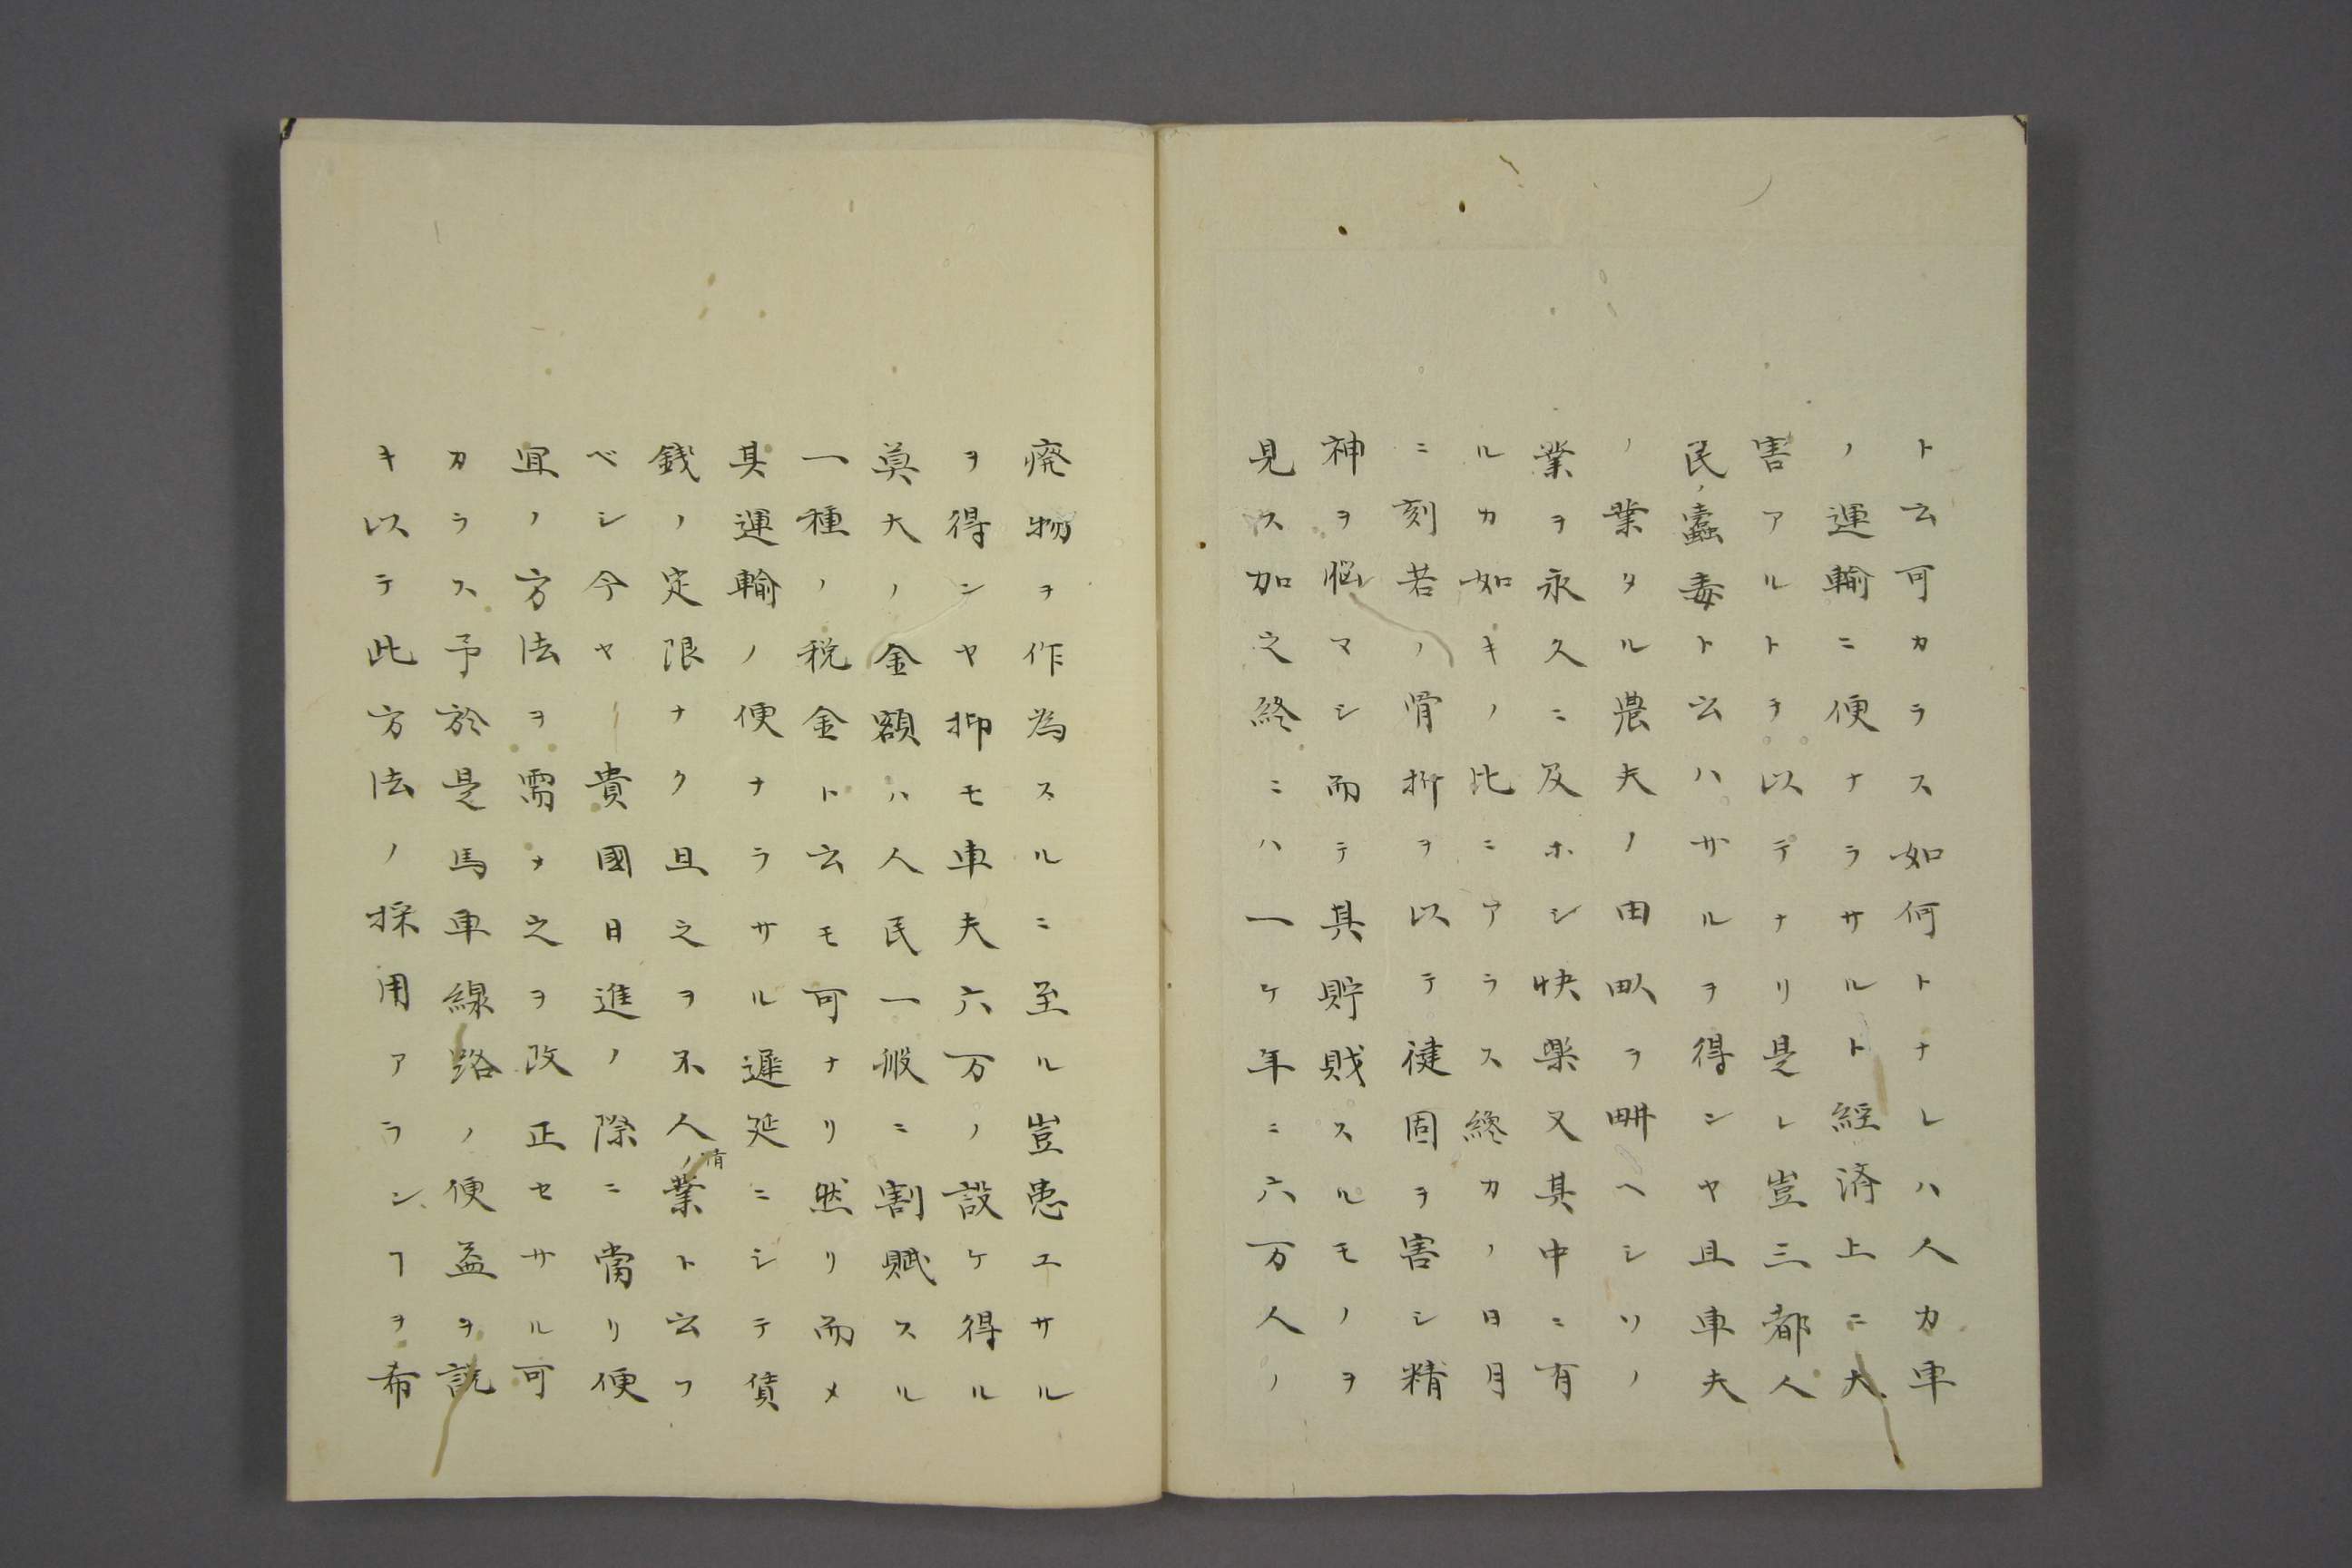 ト云可カラス如何トナレハ人カ車
ノ運輸ニ便ナラサルト経済上ニ大
害アルトヲ以テナリ是レ豈三都人
民ノ蠹毒ト云ハサルヲ得ンヤ且車夫
ノ業タル農夫ノ田畝ヲ畊ヘシソノ
業ヲ永久ニ及ホシ快楽又其中ニ有
ルカ如キノ比ニアラス終カノ日月
ニ刻苦ノ骨折ヲ以テ健固ヲ害シ精
神ヲ悩マシ而テ其貯賎スルモノヲ
見ス加之終ニハ一ケ年ニ六万人ノ
廃物ヲ作為スルニ至ル豈患エサル
ヲ得ンヤ抑モ車夫六万ノ設ケ得ル
莫大ノ金額ハ人民一般ニ割賦スル
一種ノ税金ト云モ可ナリ然リ而メ
其運輸ノ便ナラサル遅延ニシテ賃
銭ノ定限ナク且之ヲ不人情ノ業ト云フ
ベシ今ヤ貴國日進ノ際ニ當リ便
宜ノ方法ヲ需メ之ヲ改正セサル可
カラス予於是馬車線路ノ便益ヲ説
キ以テ此方法ノ採用アランヿヲ希